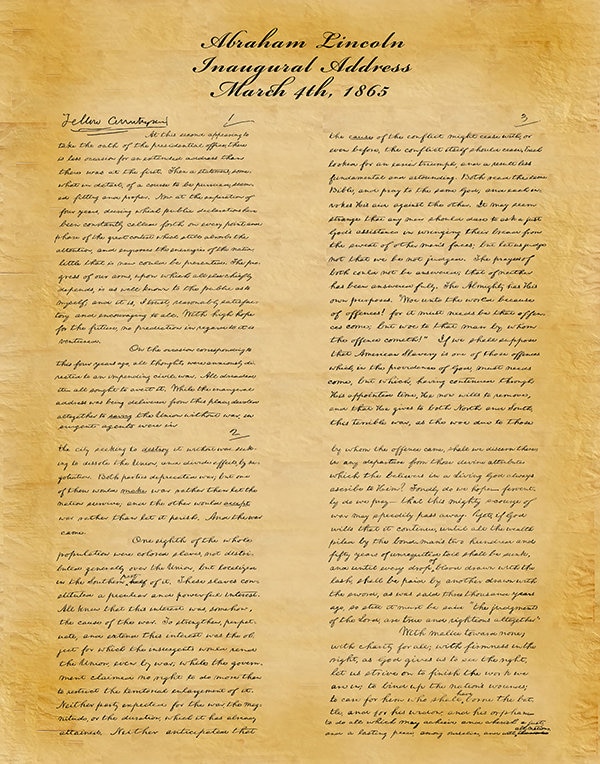 Abraham Lincoln
Inaugural Address
March 4th, 1865
Fellow Countrymen
1
At this second appearing to
take the oath of the presidential office, there
is less occasion for an extended address than
there was at the first. Then a statement, some-
what in detail, of a course to be pursued, seem-
ed fitting and proper. Now, at the expiration of
four years, during which public declarations have
been constantly called forth on every point and
phase of the great contest which still absorbs the
attention, and engrosses the energies of the nation,
little that is new could be presented. The pro-
gress of our arms, upon which all else chiefly
depends, is as well known to the public as to
myself; and it is, I trust, reasonably satisfac-
tory and encouraging to all. With high hope
for the future, no prediction in regard to it is
ventured.
On the occasion corresponding to
this four years ago, all thoughts were anxiously di-
rected to an impending civil war. All dreaded
it all sought to avert it. While the inaugural
address was being delivered from this place, devoted
altogether to saving the Union without war, in-
surgent agents were in
2
the city seeking to destroy it without war seek-
ing to dissolve the Union, and divide effects, by ne-
gotiation. Both parties deprecated war; but one
of them would make war rather than let the
nation survive; and the other would accept
war rather than let it perish. And the war
came.
One eighth of the whole
population were colored slaves, not distri-
buted generally over the Union, but localized
in the Southern part of it. These slaves con-
stituted a peculiar and powerful interest.
All knew that this interest was, somehow,
the cause of the war. To strengthen, perpet-
uate, and extend this interest was the ob-
ject for which the insurgents would rend
the Union, even by war; while the govern-
ment claimed no right to do more than
to restrict the territorial enlargement of it.
Neither party expected for the war, the mag-
nitude, or the duration, which it has already
attained. Neither anticipated that
3
the cause of the conflict might cease with, or
even before, the conflict itself should cease. Each
looked for an easier triumph, and a result less
fundamental and astounding. Both read the same
Bible, and pray to the same God; and each in-
vokes His aid against the other. It may seem
strange that any men should dare to ask a just
God's assistance in wringing their bread from
the sweat of other men's faces; but let us judge
not that we be not judged. The prayers of
both could not be answered; that of neither
has been answered fully. The Almighty has His
own purposes. "Woe unto the world because
of offences! for it must needs be that offen-
ces come; but woe to that man by whom
the offence cometh!" If we shall suppose
that American Slavery is one of those offences
which, in the providence of God, must needs
come, but which, having continued through
His appointed time, He now wills to remove,
and that He gives to both North and South,
this terrible war, as the woe due to those
by whom the offence came, shall we discern therein
any departure from those divine attributes
which the believers in a Living God always
ascribe to Him? Fondly do we hope—fervent-
ly do we pray—that this mighty scourge of
war may speedily pass away. Yet, if God
wills that it continue, until all the wealth
piled by the bond-man's two hundred and
fifty years of unrequited toil shall be sunk,
and until every drop of blood drawn with the
lash, shall be paid by another drawn with
the sword, as was said three thousand years
ago, so still it must be said "the judgments
of the Lord, are true and righteous altogether"
With malice toward none;
with charity for all; with firmness in the
right, as God gives us to see the right,
let us strive on to finish the work we
are in; to bind up the nation's wounds;
to care for him who shall have borne the bat-
tle, and for his widow, and his orphan—
to do all which may achieve and cherish a just,
and a lasting peace, among ourselves, and with all nations.